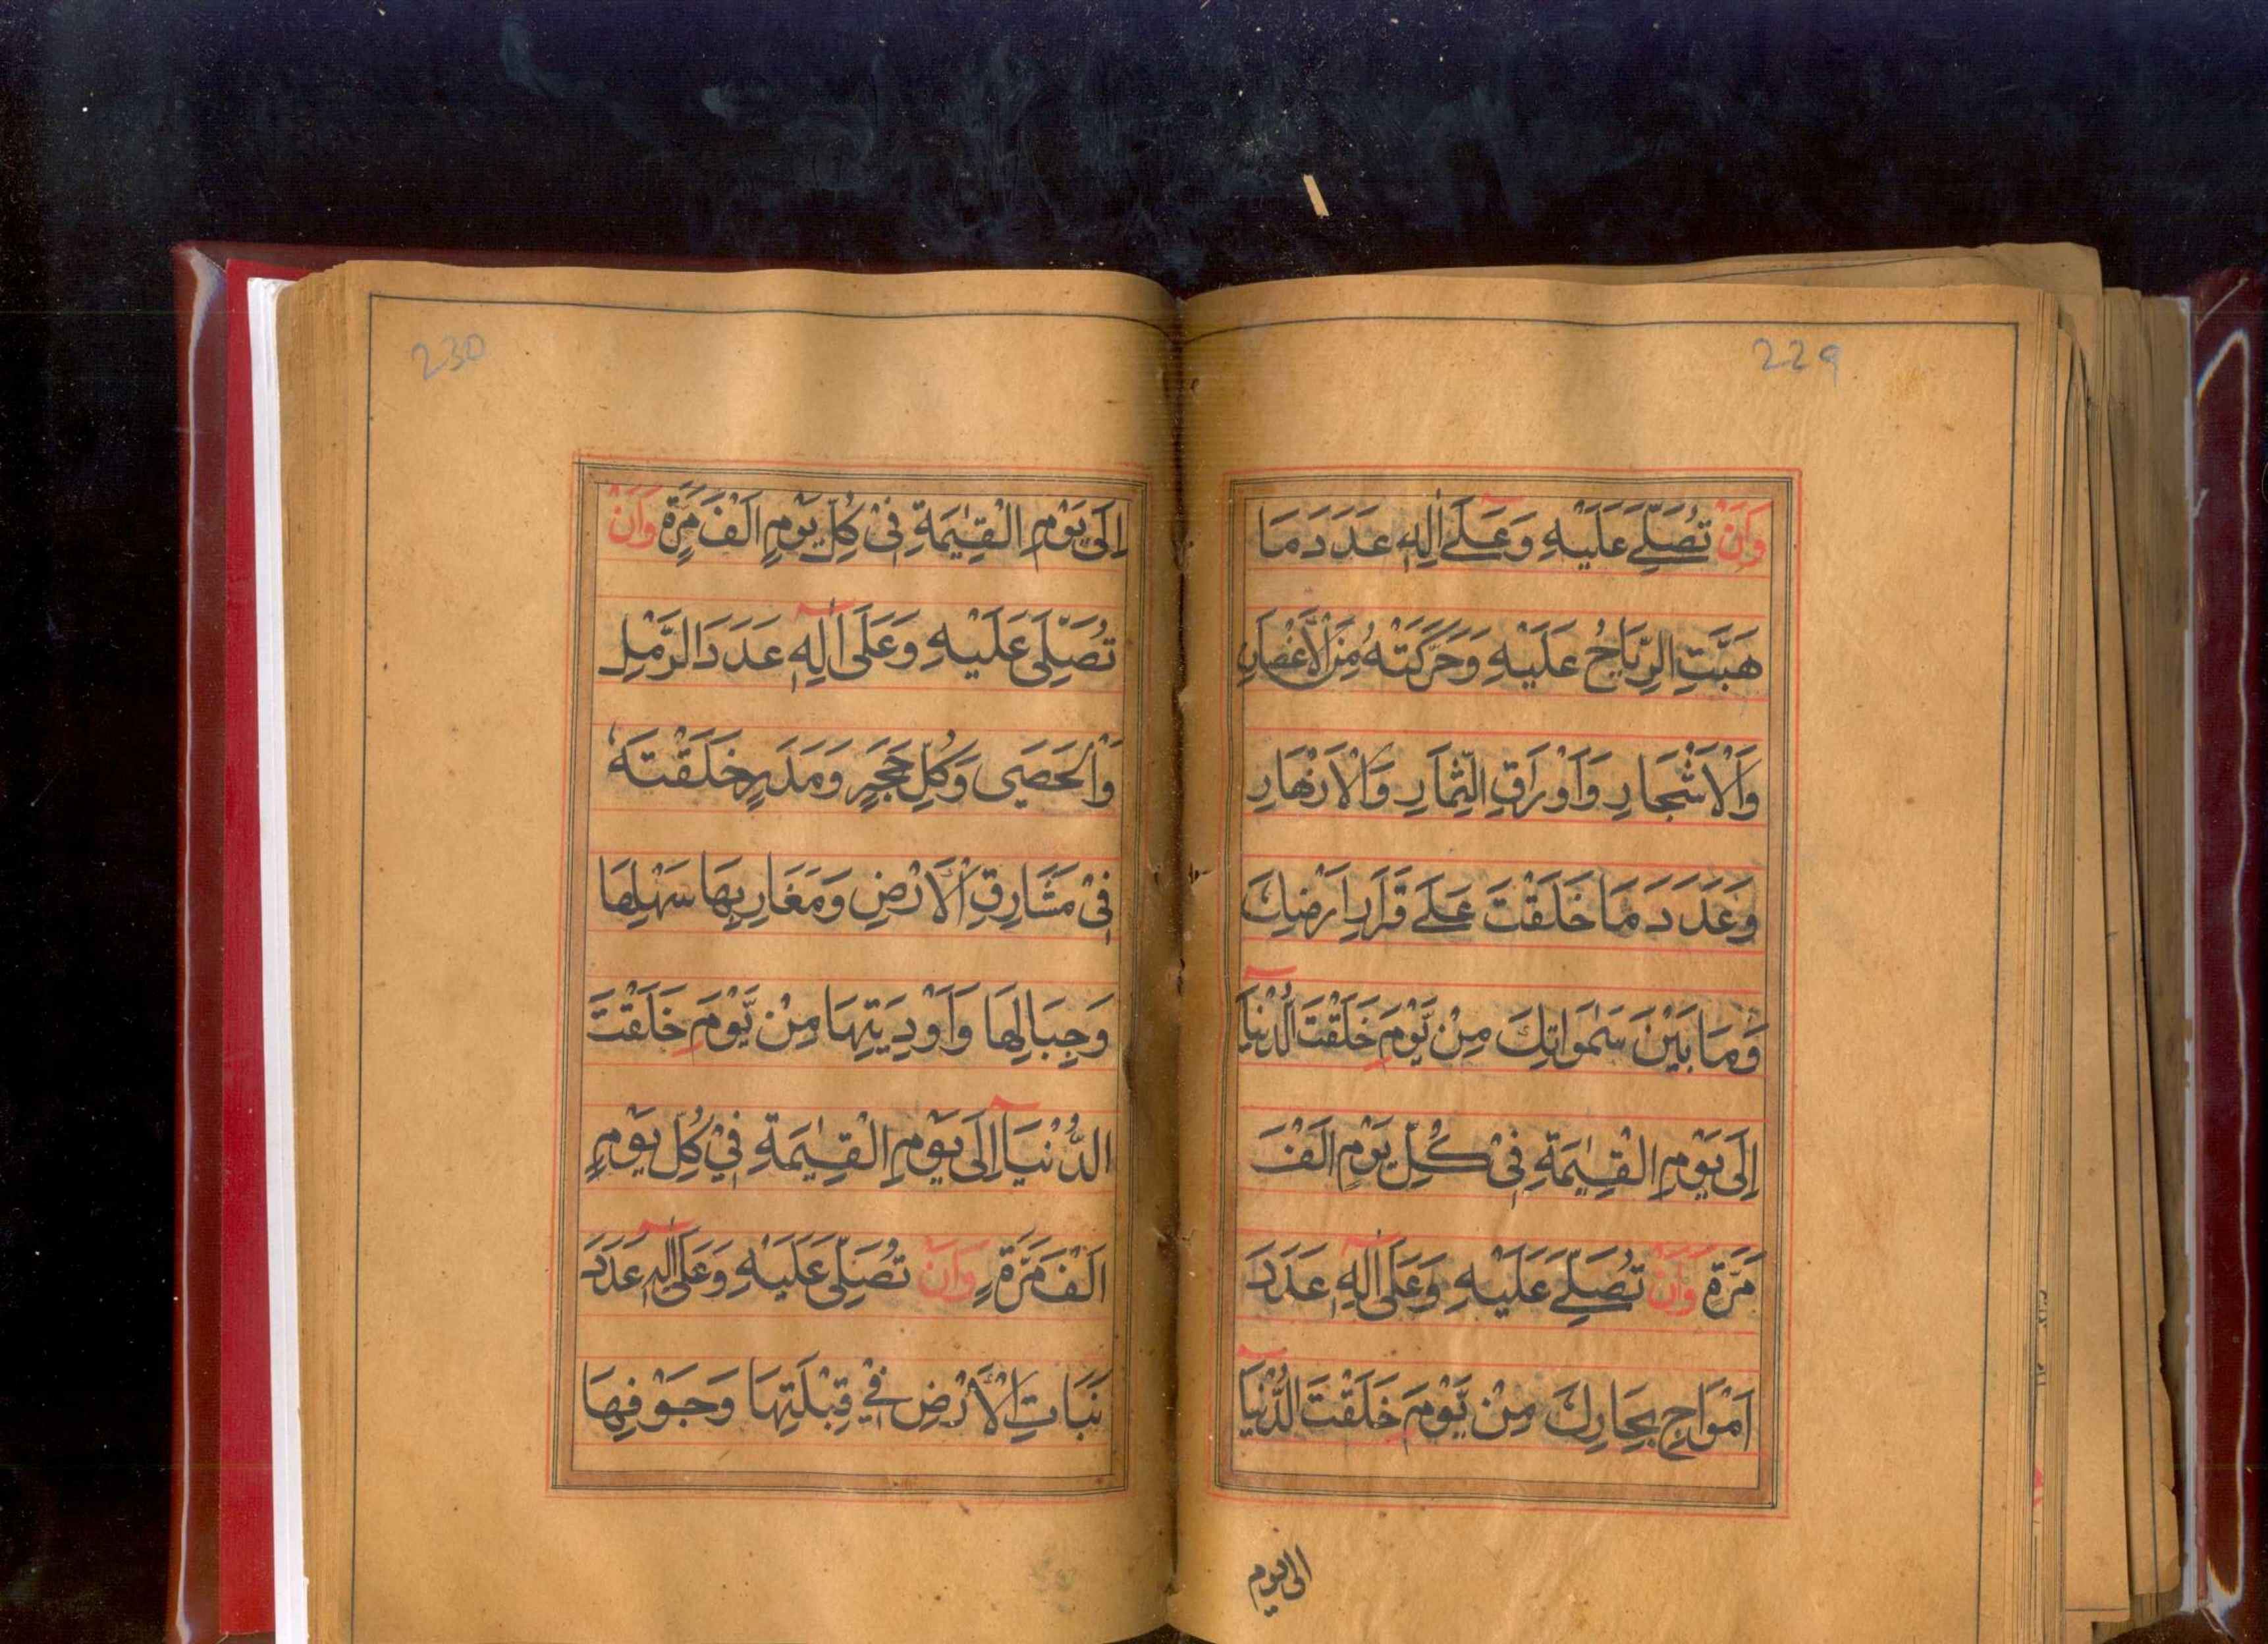 229
وَاَنْ تُصَلِّے عَلَيْهِ وَعَلٰے اٰلِهٖ عَدَدَ مَا
هَبَّتِ الرِّيَاحُ عَلَيْهِ وَحَرَّكَتْهُ مِنَ الْاَغْصَانِ
وَالْاَشْجَارِ وَاَوْرَاقِ الثِّمَارِ وَالْاَزْهَارِ
وَعَدَدَ مَا خَلَقْتَ عَلٰے قَرَارِ اَرْضِكَ
وَمَا بَيْنَ سَمٰوَاتِكَ مِنْ يَّوْمَ خَلَقْتَ الدُّنْيَا
اِلٰى يَوْمِ الْقِيٰمَةِ فِىْ كُلِّ يَوْمٍ اَلْفَ
مَرَّةٍ وَاَنْ تُصَلِّے عَلَيْهِ وَعَلٰى اٰلِهٖ عَدَدَ
اَمْوَاجِ بِحَارِكَ مِنْ يَّوْمَ خَلَقْتَ الدُّنْيَا
الى يوم
230
اِلٰى يَوْمِ الْقِيٰمَةِ فِىْ كُلِّ يَوْمٍ اَلْفَ مَرَّةٍ وَاَنْ
تُصَلِّىَ عَلَيْهِ وَعَلٰى اٰلِهٖ عَدَدَ الرَّمْلِ
وَالْحَصٰى وَكُلِّ حَجَرٍ وَمَدَرٍ خَلَقْتَهٗ
فِىْ مَشَارِقِ الْاَرْضِ وَمَغَارِبِهَا سَهْلِهَا
وَجِبَالِهَا وَاَوْدِيَتِهَا مِنْ يَّوْمَ خَلَقْتَ
الدُّنْيَا اِلٰى يَوْمِ الْقِيٰمَةِ فِىْ كُلِّ يَوْمٍ
اَلْفَ مَرَّةٍ وَاَنْ تُصَلِّىَ عَلَيْهِ وَعَلٰى اٰلِهٖ عَدَدَ
نَبَاتِ الْاَرْضِ فِىْ قِبْلَتِهَا وَجَوْفِهَا